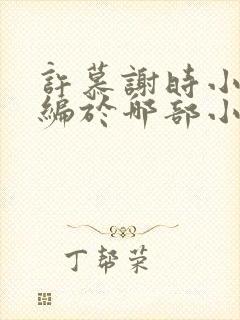 許慕謝時小
編於那部小
丁帮荣